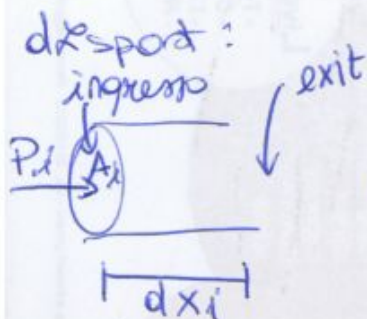 dLspost:
ingresso
exit
Pi
Ai
dxi